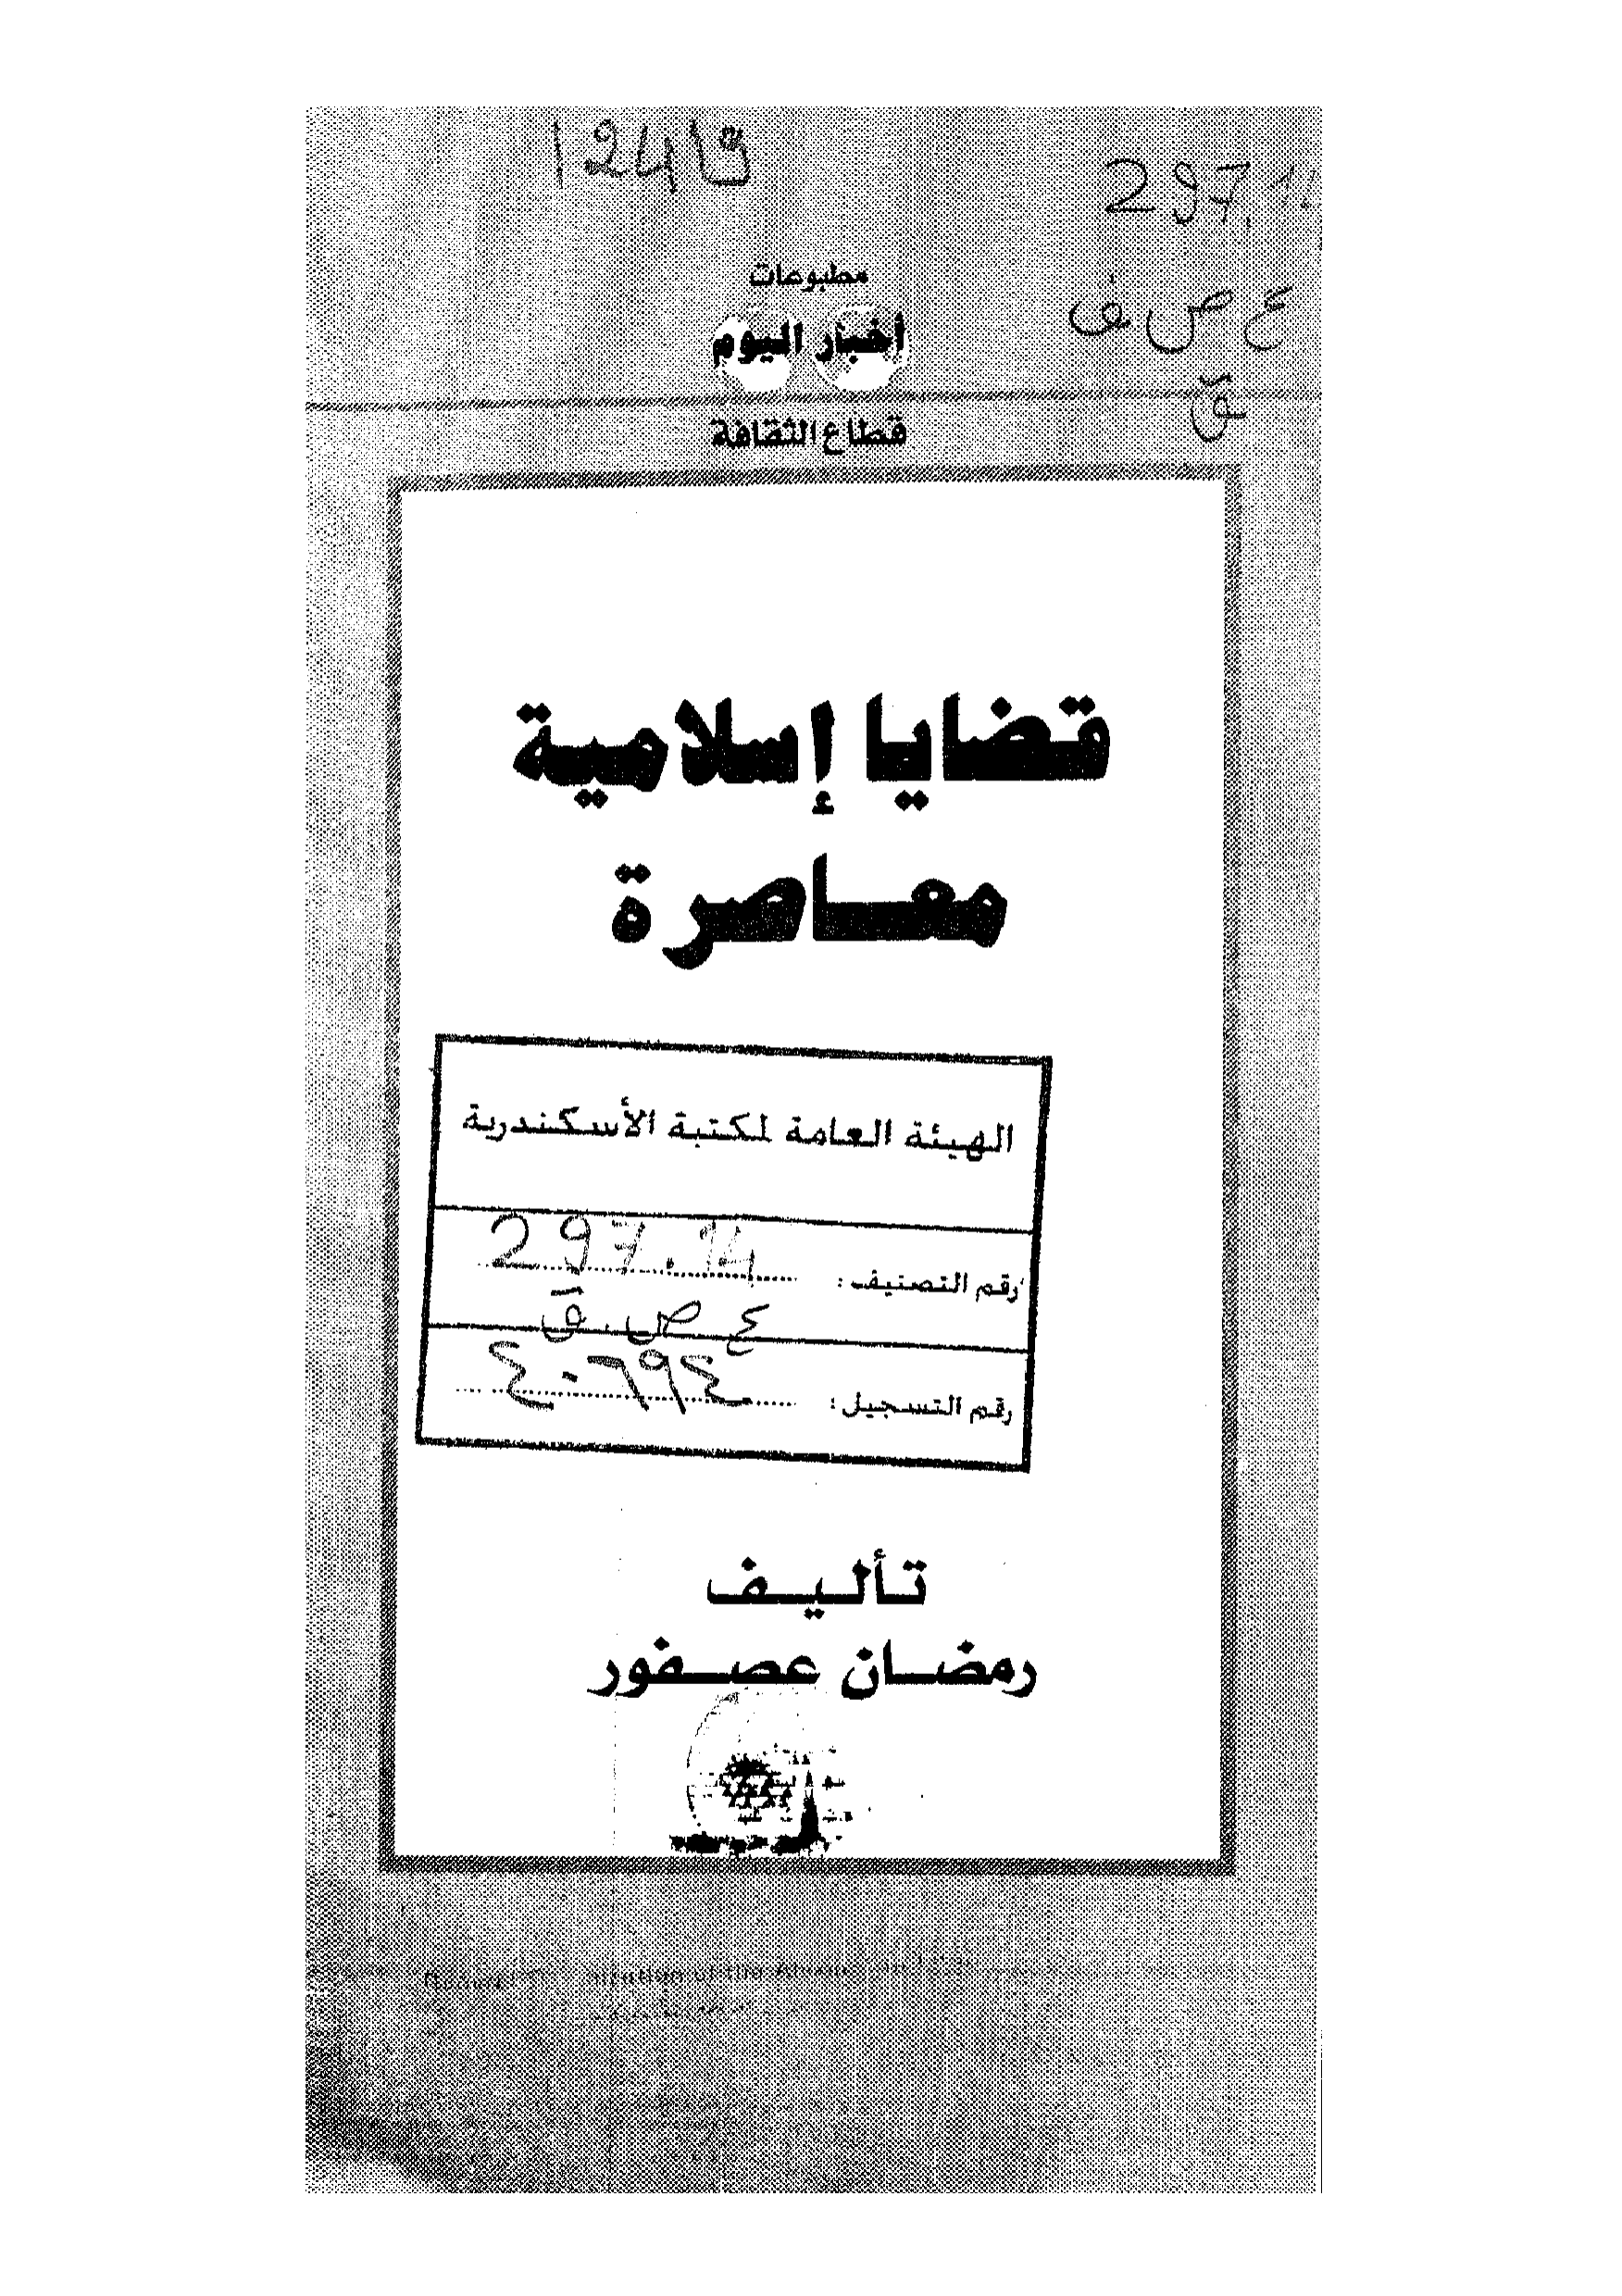 297.14
ع ص ف
ق
مطبوعات
أخبار اليوم
قطاع الثقافة
قضايا إسلامية
معاصرة
الهيئة العامة لمكتبة الأسكندرية
رقم التصنيف: 297.14
ع ص. ق
رقم التسجيل: ٤٠٦٩٤
تأليف
رمضان عصفور